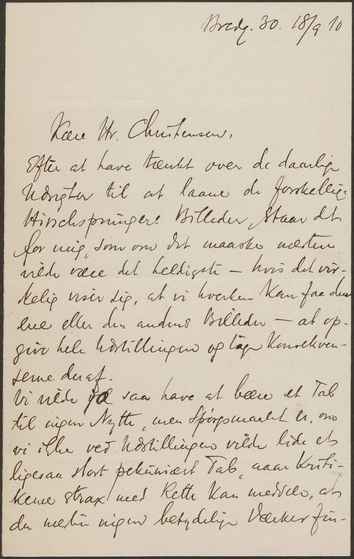 Bredg. 30. 18/9 10
Kære Hr. Christensen,
Efter at have tænkt over de daarlige
Udsigter til at laane de forskellige
Hirschsprungere Billeder, staar det
for mig, som om det maaske næsten
vilde være det heldigste – hvis det vir-
kelig viser sig, at vi hverken kan faa den
ene eller den andens Billeder – at op-
give hele Udstillingen og tage Konsekven-
serne deraf.
Vi vilde jo saa have at bære et Tab
til ingen Nytte, men Spørgsmaalet er, om
vi ikke ved Udstillingen vilde lide et
ligesaa stort pekuniært Tab, naar Kriti-
kerne strax med Rette kan meddele, at
der næsten ingen betydelige Værker fin-